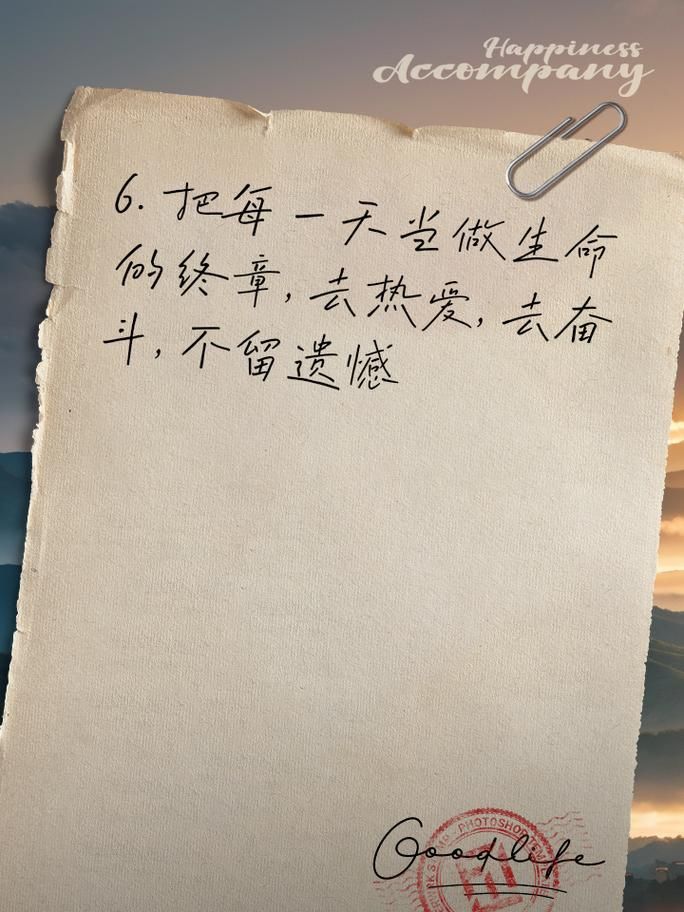 Happiness
Accompany
6. 把每一天当做生命
的终章，去热爱，去奋
斗，不留遗憾
PHOTOSHOP
Goodlife